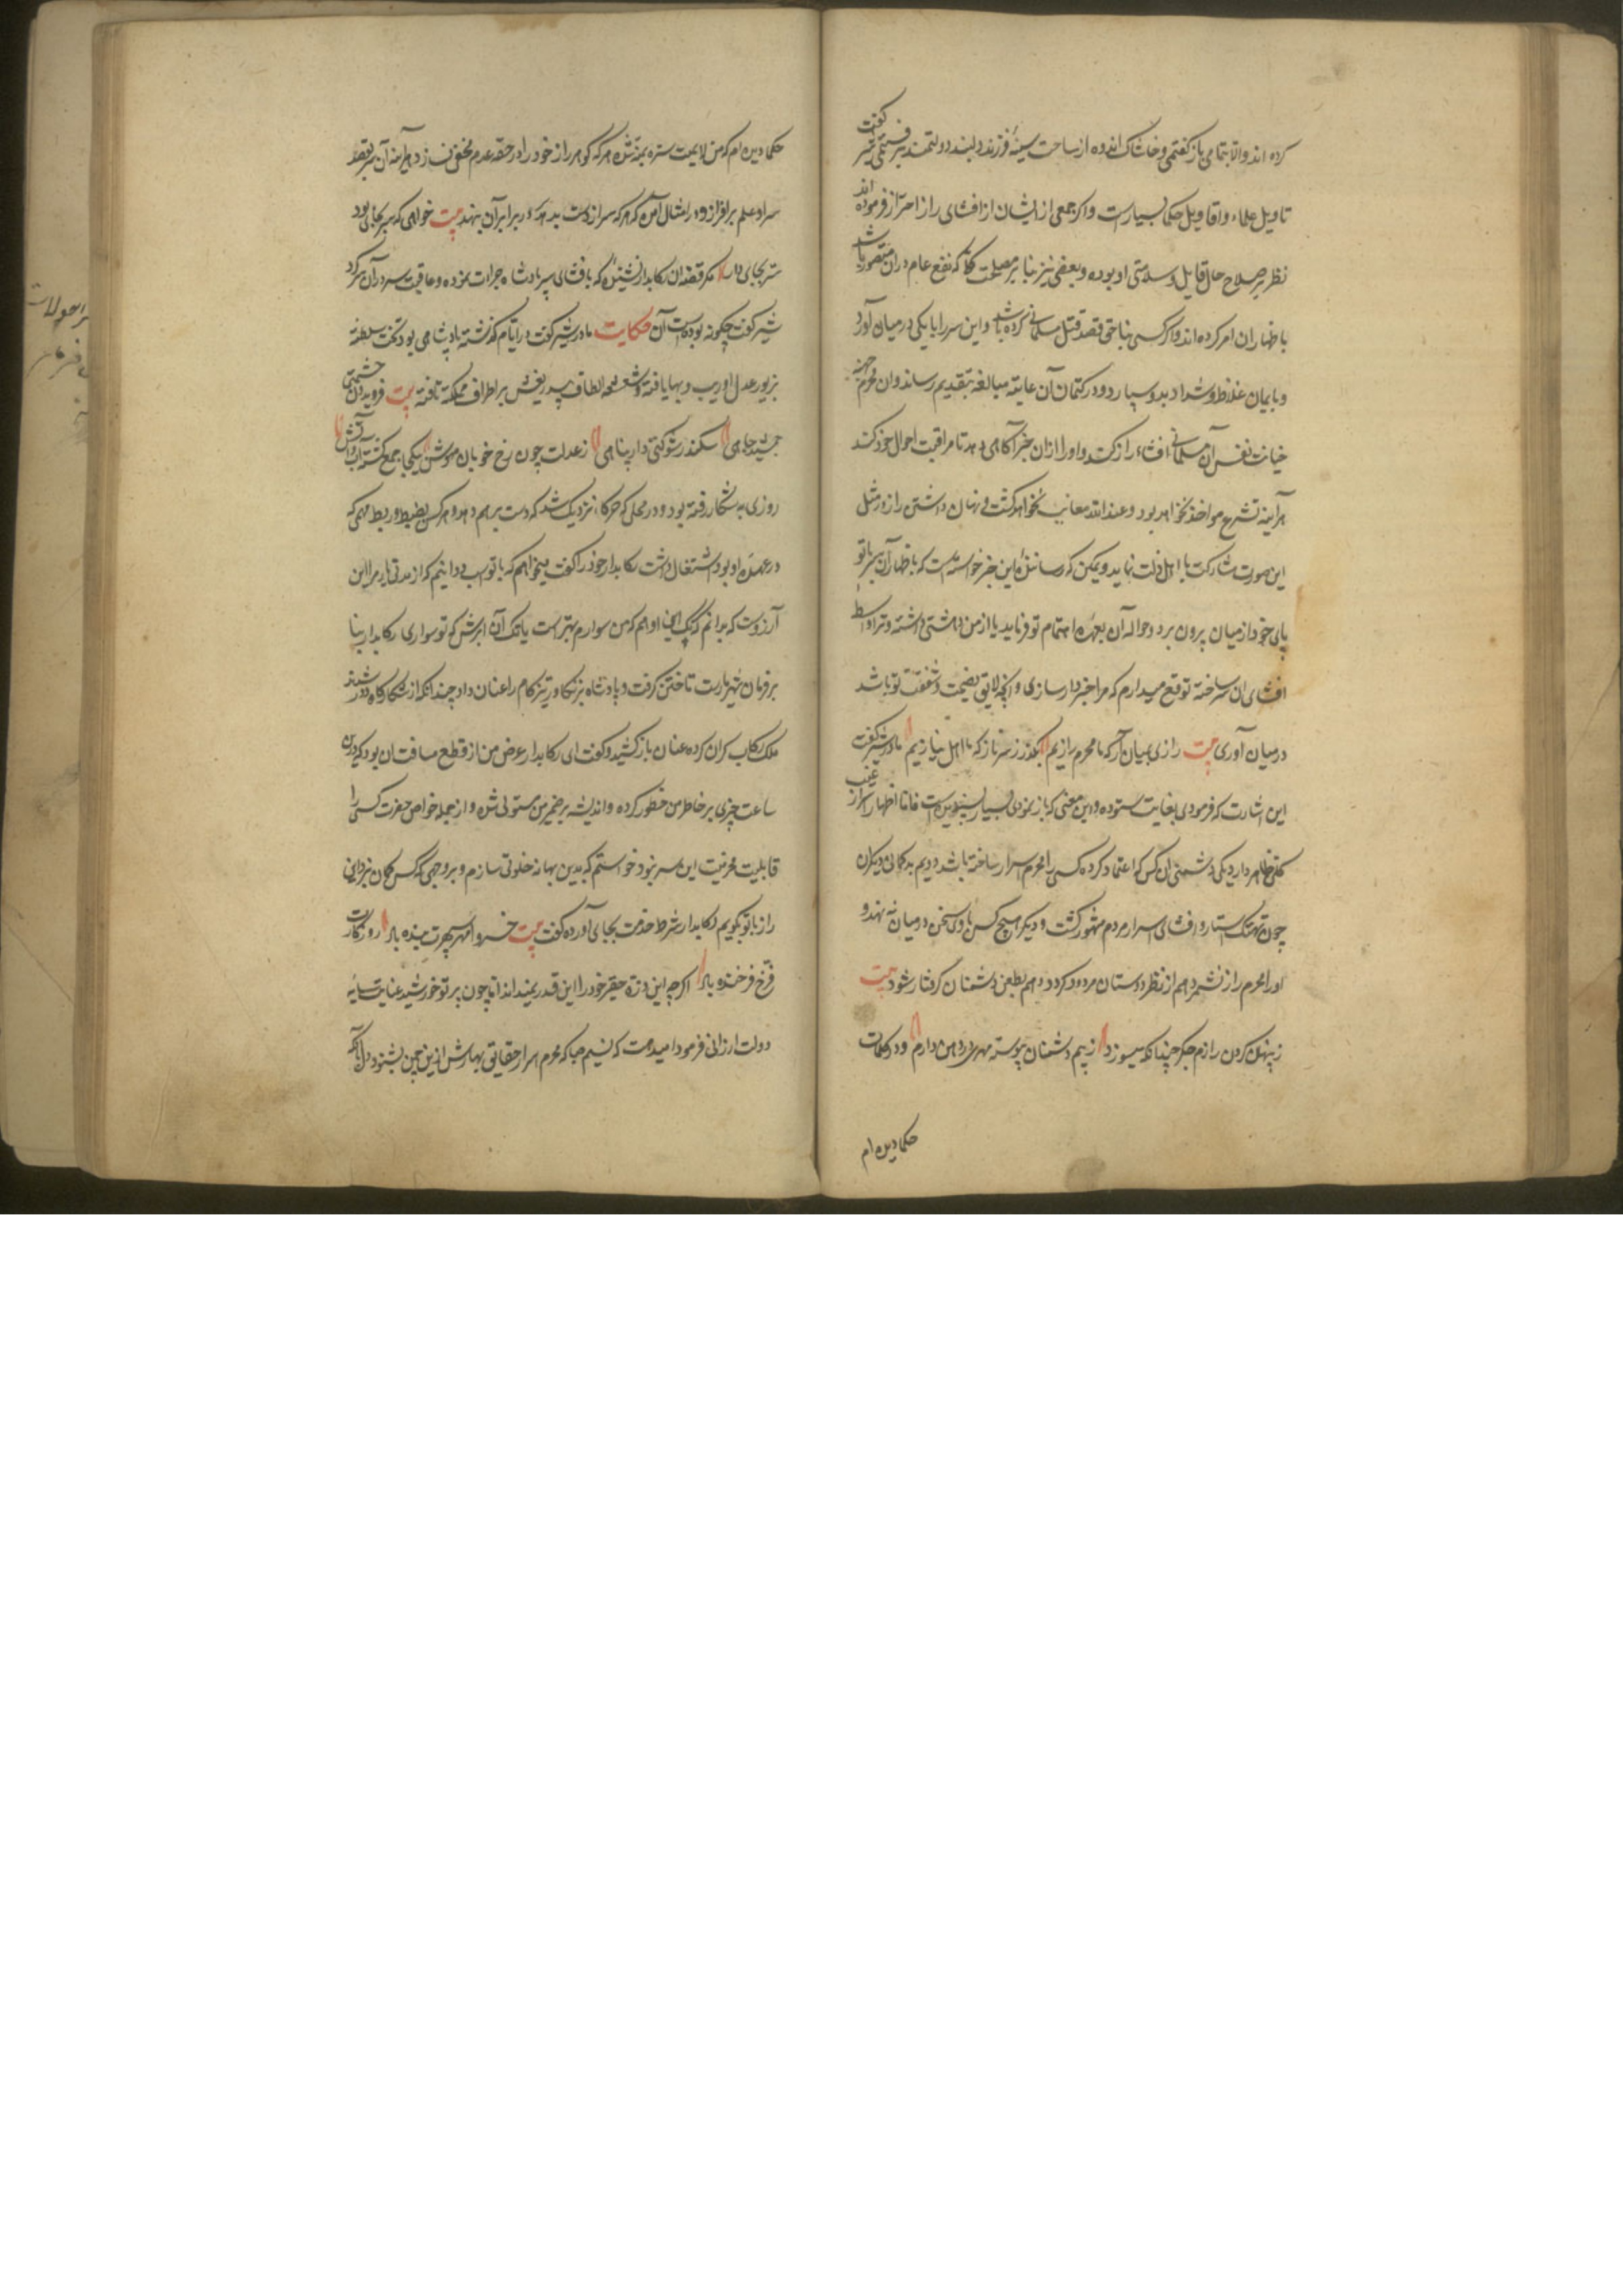 کرده اند والا بتمامی بازگفتمی و خاشاک اندوه از ساحت سینهٔ فرزند دلبند دولتمند برفتمی شیر گفت
تاویل علماء و اقاویل حکما بسیارست و اکر جمعی از ایشان از افشای راز احتراز فرموده اند
نظر بر صلاح حال قایل و سلامتی او بوده و بعضی نیز بنا بر مصلحت کلی که نفع عام دران متصور باشد
باظهار ان امر کرده اند و اکر کسی بناحق قصد قتل مسلمانی کرده باشد و این سر را با یکی در میان آورد
و بایمان غلاظ و شداد بدو سپارد و در کتمان آن غایة مبالغه بتقدیم رساند و ان محرم جهة
خیانت نفس آن مسلمانی افشاء راز کند و او را ازان خبر آکاهی دهد تا مراقبت احوال خود کند
هرآینه بشرع مواخذ نخواهد بود و عند الله معاتب نخواهد کشت و نهان داشتن راز در مثل
این صورت مشارکت با اهل ذلت نماید و یمکن که رسانندهٔ این خبر خواسته است که باظهار آن سر با تو
پای خود از میان برون برد و حواله آن بعهدهٔ اهتمام تو فرماید یا از من دهشتی داشته و ترا واسطهٔ
افشای ان سر ساخته توقع میدارم که مرا خبردار سازی و انچه لایق نصیحت و شفقت تو باشد
در میان آوری بیت رازی بمیان آر که ما محرم رازیم بگذر ز سر ناز که ما اهل نیازیم مادر شیر گفت
این اشارت که فرمودی بغایت ستوده و این معنی که باز نمودی بسیار پسندیده است فاما اظهار اسرار عیب
کلی ظاهر دارد یکی دشمنی ان کس که اعتماد کرده کسی را محرم اسرار ساخته باشد دویم بدکمانی دیکران
چون بهتک استار و افشای اسرار مردم مشهور کشت و دیکر هیچ کس با وی سخن در میان نه نهد و
اورا محرم راز نشمرد هم از نظر دوستان مردود کردد و هم بطعن دشمنان کرفتار شود بیت
ز پنهان کردن رازم جکر چندانکه میسوزد ز بیم دشمنان پیوسته مهری در دهن دارم و در کلمات
حکما دیده ام
حکما دیده ام که من
سر او علم برافرازد و در امثال آمده که هر که سر از دست بدهد سر در برابر آن بنهد بیت خواهی که سر بجای بود
سر بجای دار مکر قصهٔ ان رکابدار نشنیدهٔ که بافشای سر پادشاه جرات نموده و عاقبت سر در سر آن کرد
شیر گفت چکونه بوده است آن حکایت مادر شیر گفت در ایام کذشته پادشاهی بود تخت سلطنه
بزیور عدل او زیب و بها یافته و شعشعهٔ الطاف بی دریغش بر اطراف مملکة تافته بیت فریدون حشمتی
جمشید جاهی سکندر شوکتی دارا پناهی ز عدلت چون رخ خوبان مهوش بیکجا جمع کشته آب و آتش
روزی به شکار رفته بود و در محلی که جرکا نزدیک شد که دست بر هم دهد و هر کس بضبط و ربط مهمی که
در عهدهٔ او بود اشتغال داشت رکابدار خود را گفت میخواهم که با تو اسب دوانیم که از مدتی باز مرا این
آرزوست که بدانم که تک این ادهم که من سوارم بهترست یا تک آن ابرش که تو سواری رکابدار بنا
بر فرمان شهریارت تاختن گرفت و پادشاه نیز تکاور تیزکام را عنان داد چندانکه از شکارکاه دور شدند
ملک رکاب کران کرده عنان باز کشید و گفت ای رکابدار غرض من از قطع مسافت ان بود که درین
ساعت چیزی بر خاطر من خطور کرده و اندیشه بر ضمیر من مستولی شده و از جمله خواص حضرت کسی را
قابلیت محرمیت این سر نبود خواستم که بدین بهانه خلوتی سازم و بر وجهی که کس کمان نبرد این
راز با تو بکویم رکابدار شرط خدمت بجای آورده گفت بیت خسروا مهر سپهرت بنده باد روزگارت
فرخ فرخنده باد اکر چه این ذرهٔ حقیر خود را این قدر نمیداند اما چون پرتو خورشید عنایت سایه
دولت ارزانی فرمود امیدست که نسیم صبا که محرم اسرار حقایق بهارست ازین چمن بشنود